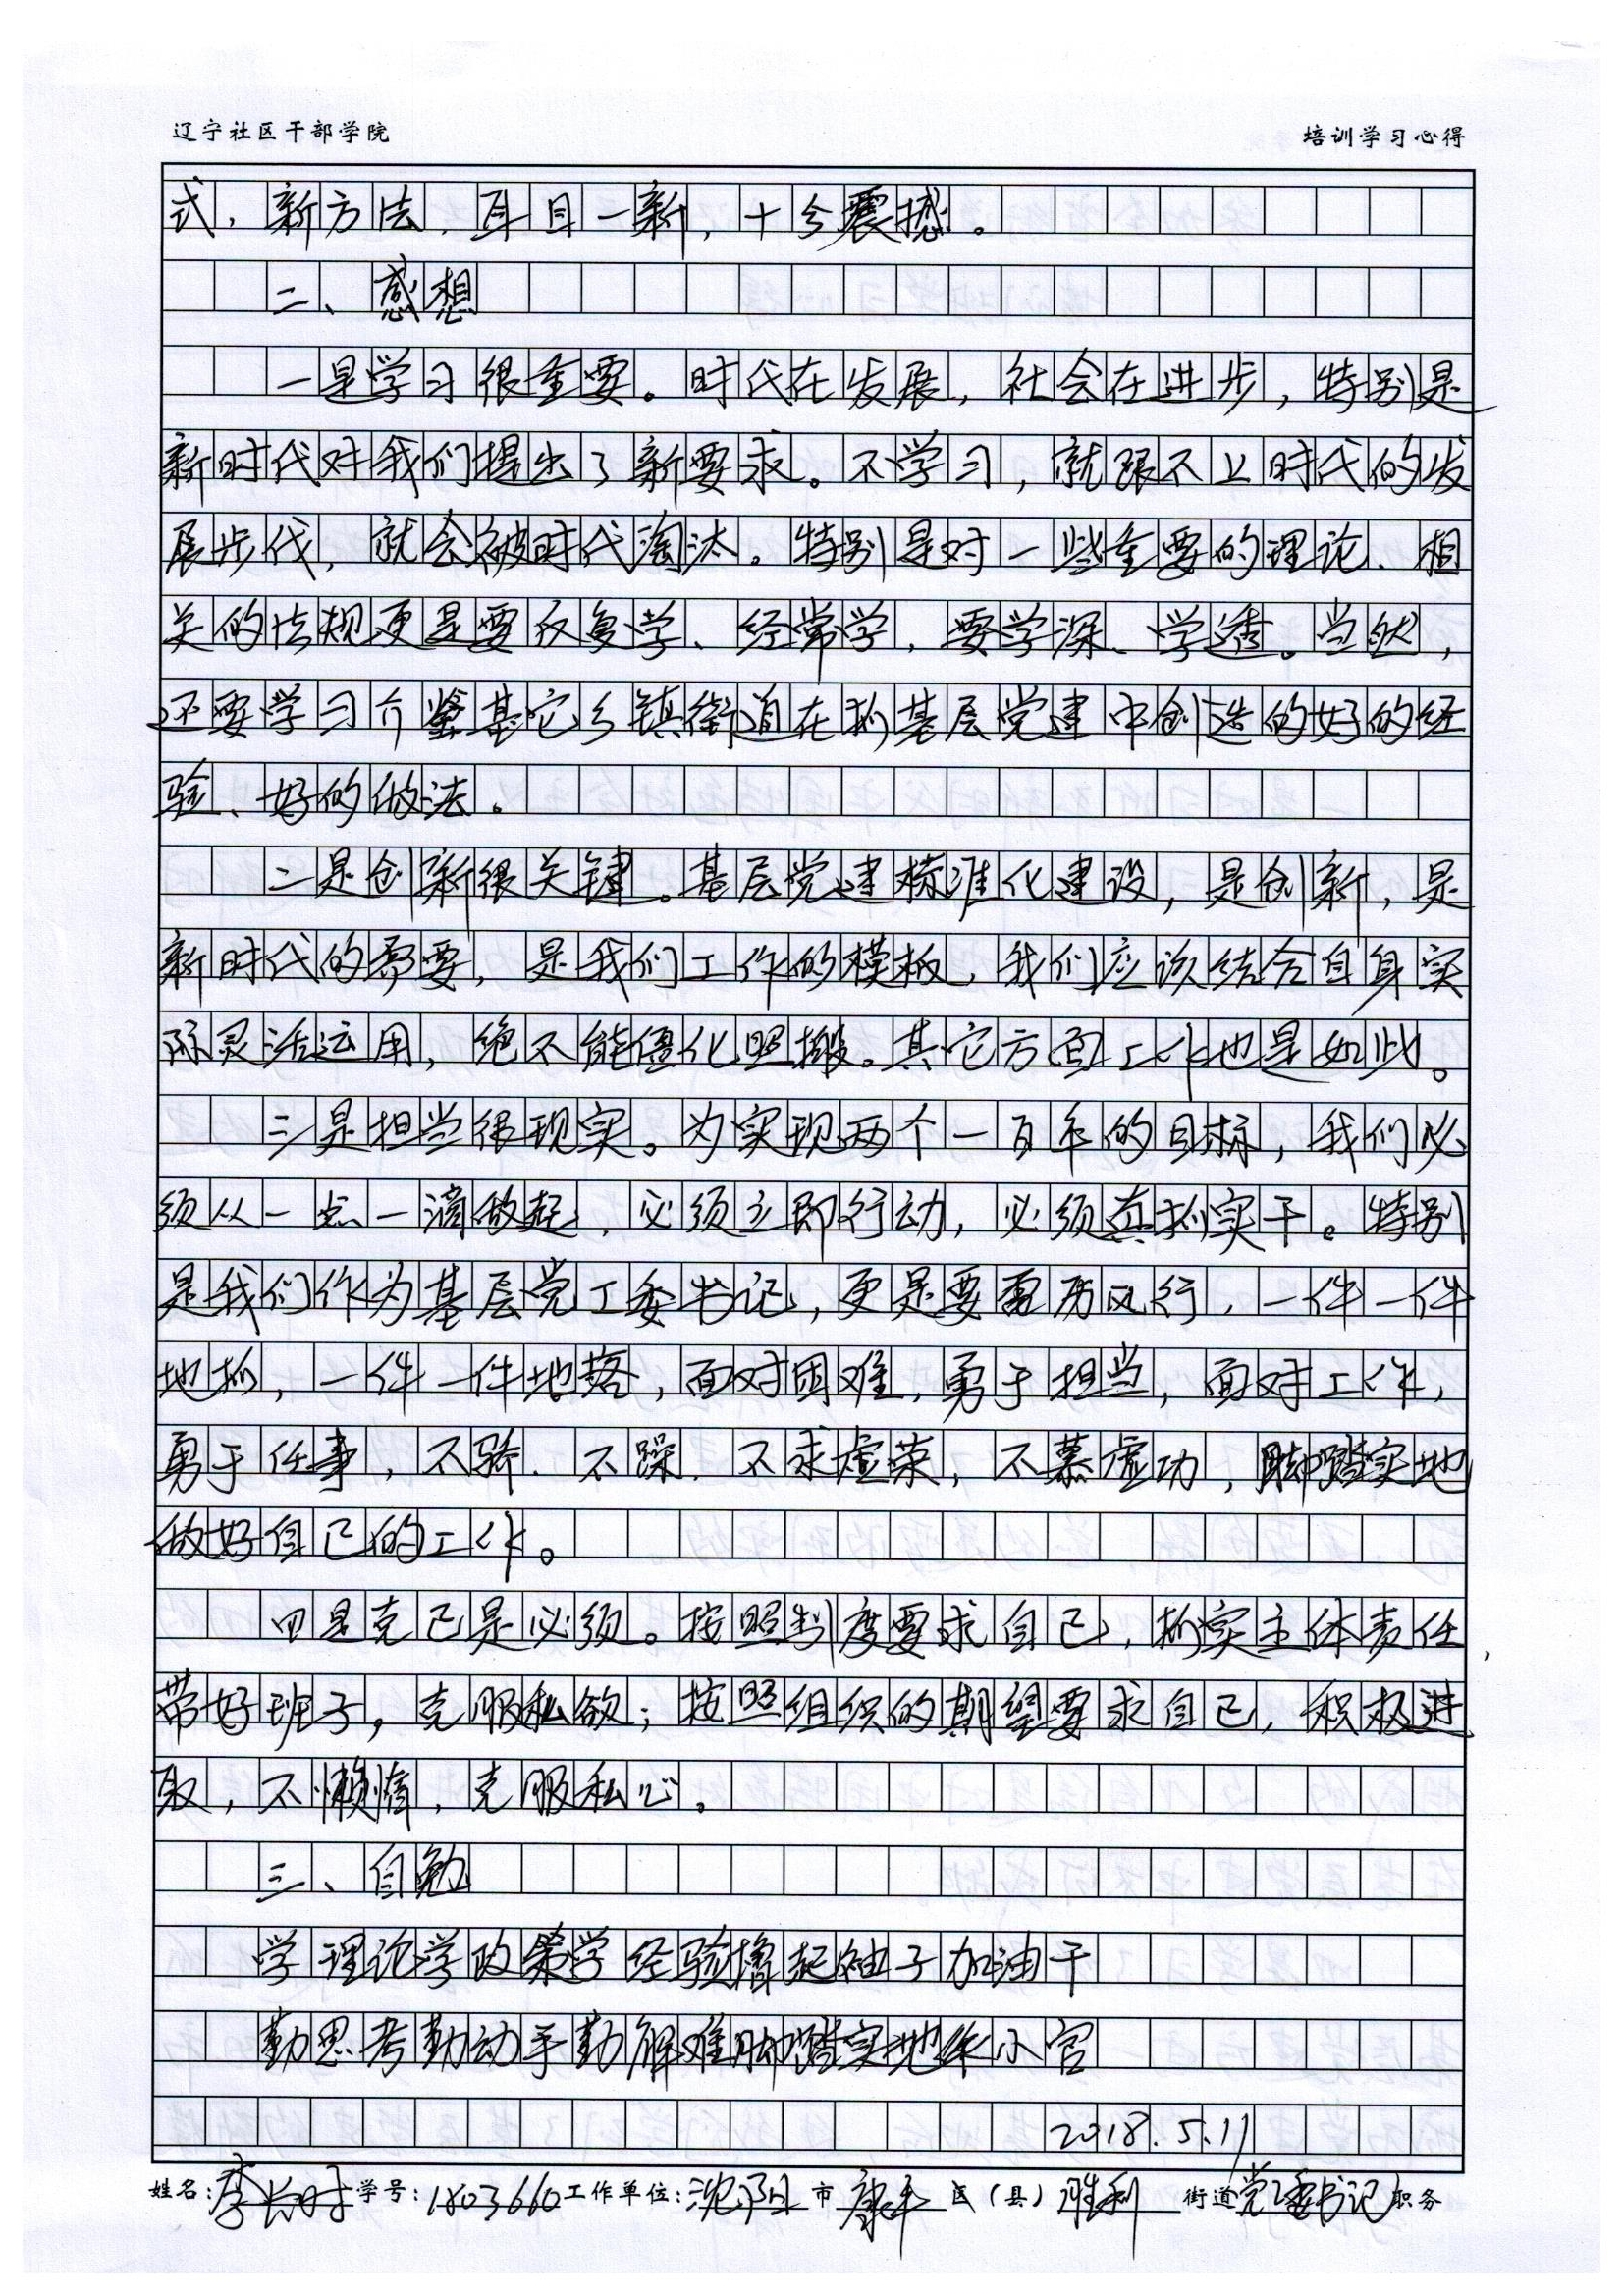 辽宁社区干部学院 培训学习心得
式，新方法，耳目一新，十分震撼。
二、感想
一是学习很重要。时代在发展，社会在进步，特别是
新时代对我们提出了新要求。不学习，就跟不上时代的发
展步伐，就会被时代淘汰。特别是对一些重要的理论、相
关的法规更是要反复学、经常学，要学深、学透。当然，
还要学习介鉴其它乡镇街道在抓基层党建中创造的好的经
验、好的做法。
二是创新很关键。基层党建标准化建设，是创新，是
新时代的需要，是我们工作的模板，我们应该结合自身实
际灵活运用，绝不能僵化照搬。其它方面工作也是如此。
三是担当很现实。为实现两个一百年的目标，我们必
须从一点一滴做起，必须立即行动，必须真抓实干。特别
是我们作为基层党工委书记，更是要雷厉风行，一件一件
地抓，一件一件地落，面对困难，勇于担当，面对工作，
勇于任事，不骄、不躁、不求虚荣，不慕虚功，脚踏实地
做好自己的工作。
四是克己是必须。按照制度要求自己，抓实主体责任，
带好班子，克服私欲；按照组织的期望要求自己，积极进
取，不懒惰，克服私心。
三、自勉
学理论学政策学经验撸起袖子加油干
勤思考勤动手勤解难脚踏实地作小官
2018.5.11
姓名：李长时 学号：1803660 工作单位：沈阳 市 康平 区（县） 胜利 街道 党工委书记 职务